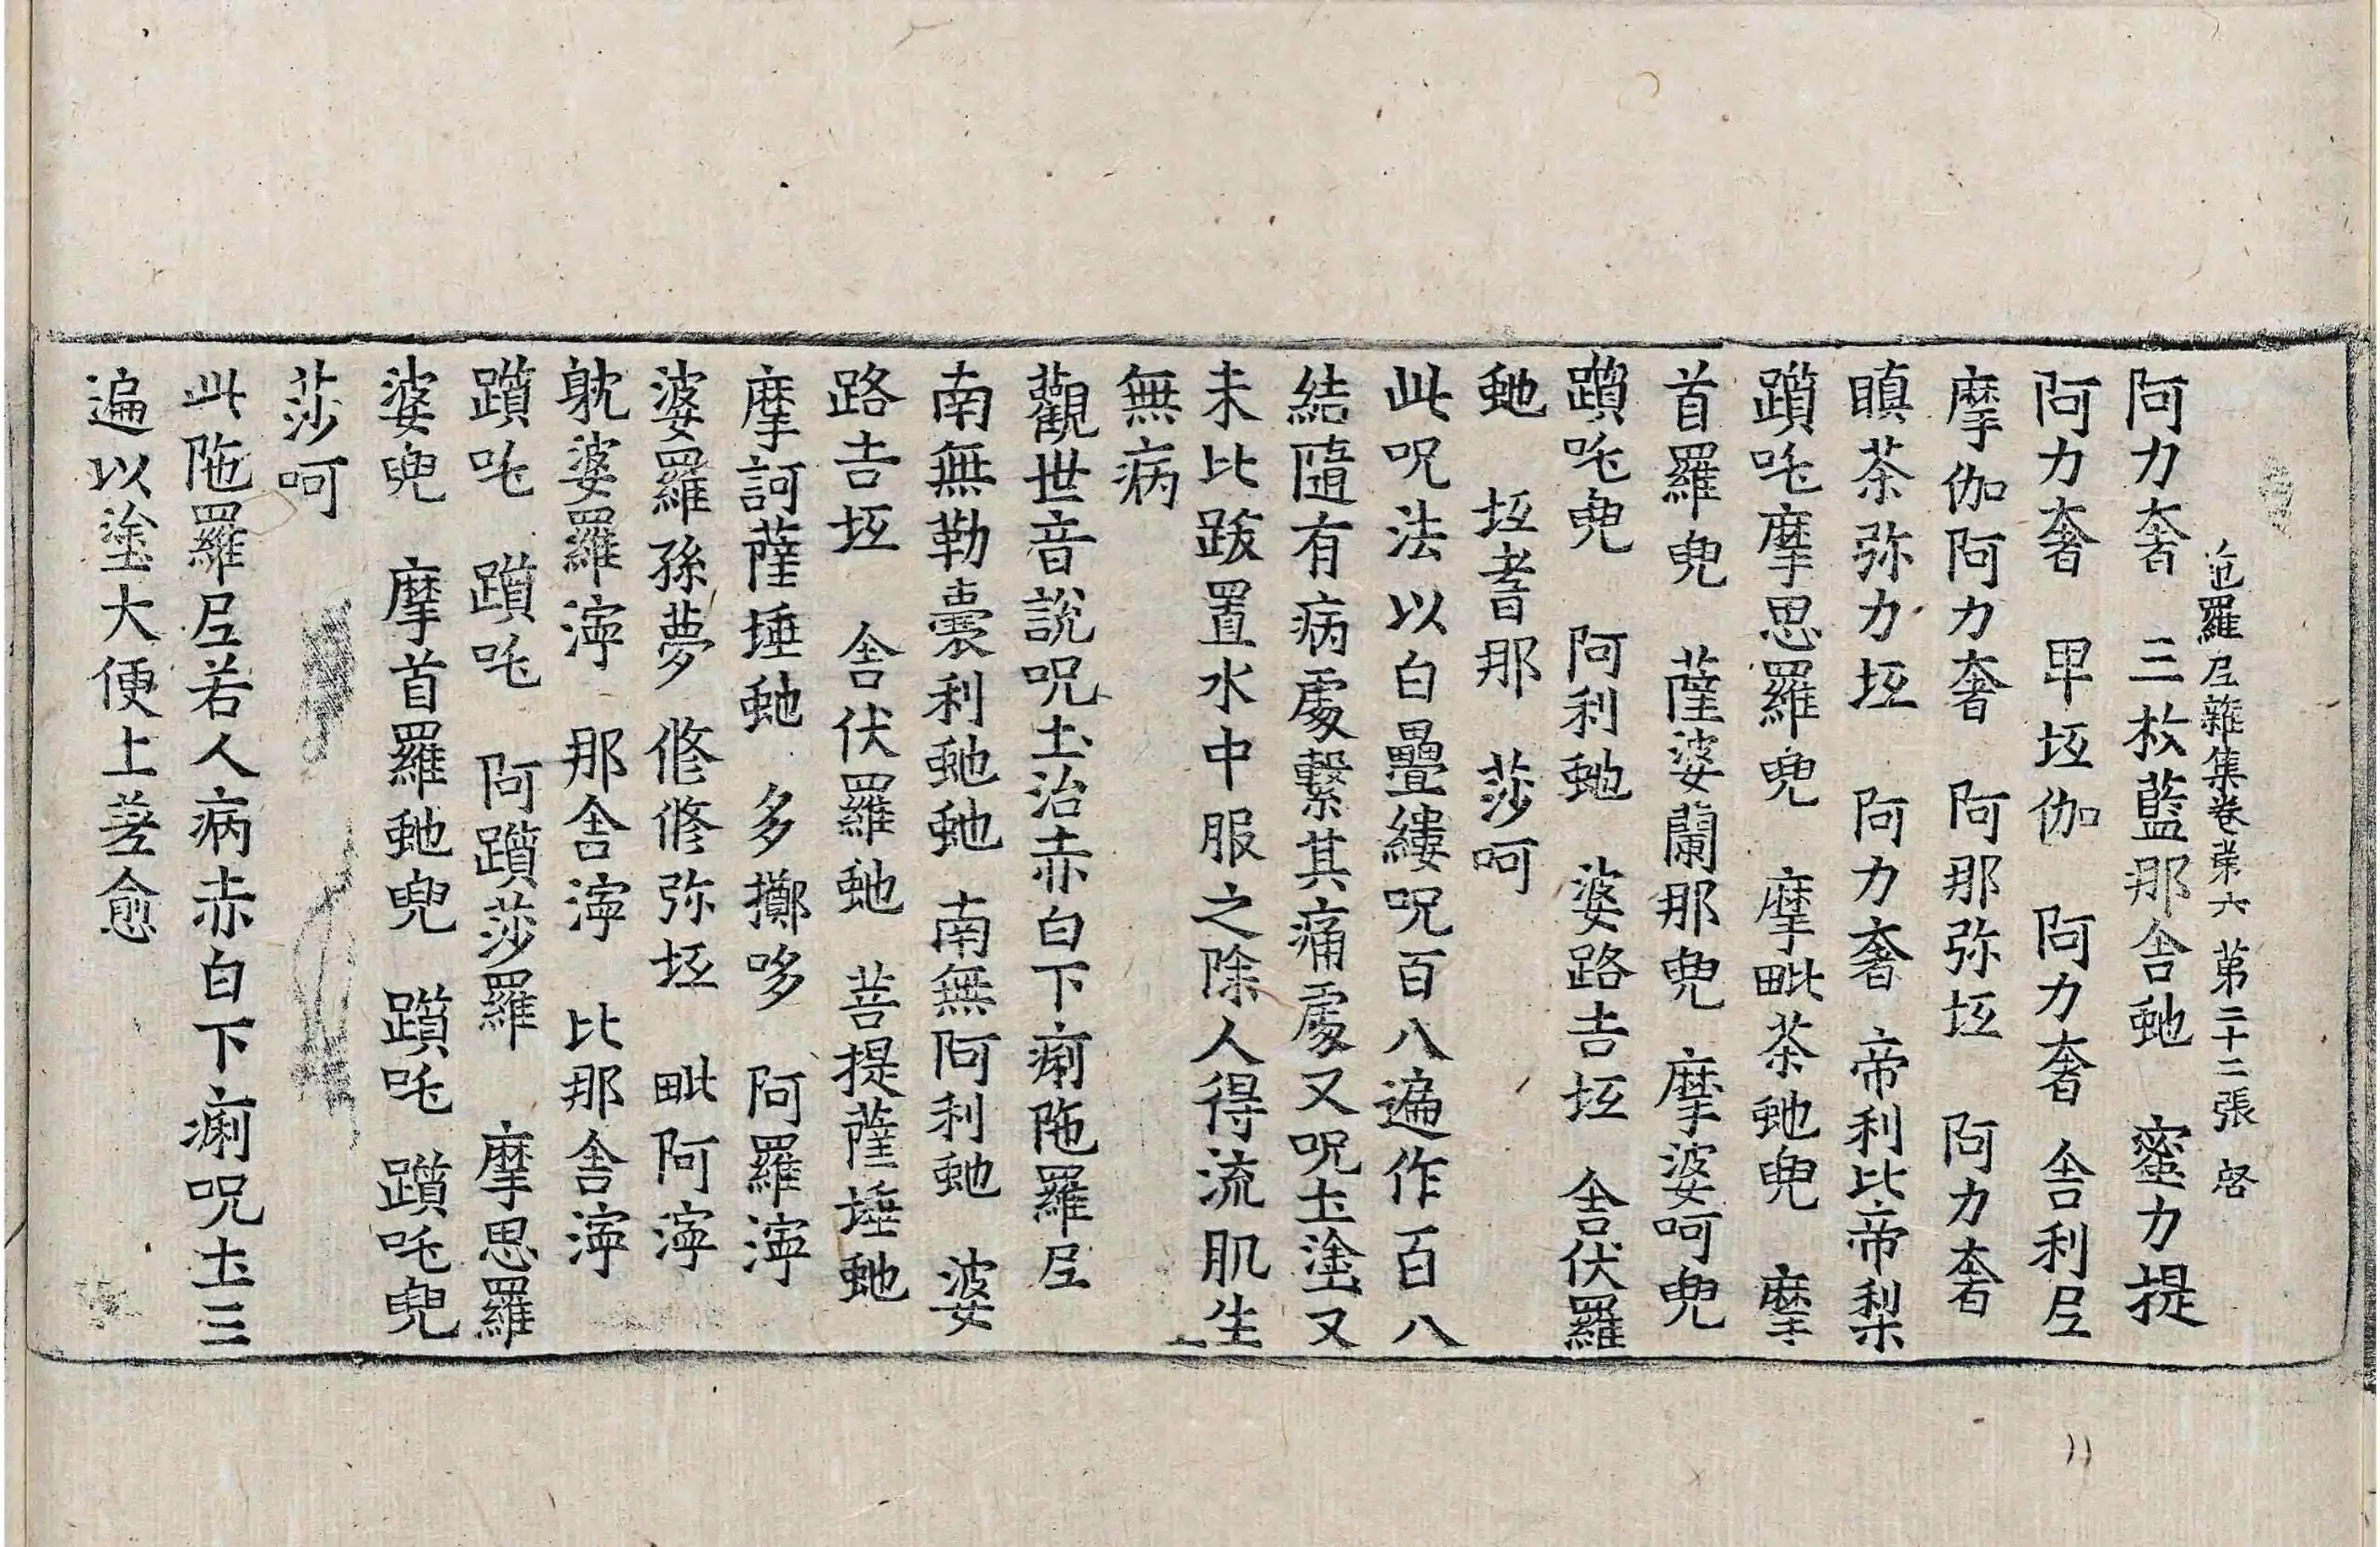 陁羅𡰱雜集卷第六 第二十二張 啓
阿力奢 三枚藍那舍虵 蜜力提
阿力奢 早坘伽 阿力奢 舍利𡰱
摩伽阿力奢 阿那弥坘 阿力奢
瞋茶弥力坘 阿力奢 帝利比帝梨
躓吒摩思羅兜 摩毗茶虵兜 摩
首羅兜 薩婆蘭那兜 摩婆呵兜
躓吒兜 阿利虵 婆路吉坘 舍伏羅
虵 坘耆那 莎呵
此呪法以白疊縷呪百八遍作百八
結隨有病處繫其痛處又呪土塗又
未比跋置水中服之除人得流肌生
無病
觀世音說呪土治赤白下痢陁羅𡰱
南無勒囊利虵虵 南無阿利虵 婆
路吉坘 舍伏羅虵 菩提薩埵虵
摩訶薩埵虵 多擲哆 阿羅濘
婆羅孫夢 脩脩弥坘 毗阿濘
躭婆羅濘 那舍濘 比那舍濘
躓吒 躓吒 阿躓莎羅 摩思羅
婆兜 摩首羅虵兜 躓吒 躓吒兜
莎呵
此陁羅𡰱若人病赤白下痢呪土三
遍以塗大便上差愈